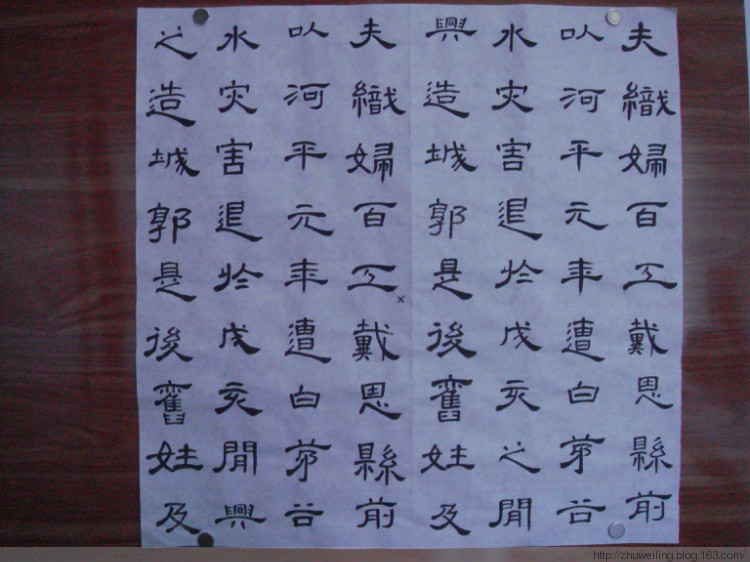 夫織婦百工戴恩縣前
以河平元年遭白茅谷
水灾害退於戌亥之間
興造城郭是後舊姓及
夫織婦百工戴恩縣前
以河平元年遭白茅谷
水灾害退於戌亥間興
之造城郭是後舊姓及
http://zhuweiling.blog.163.com/